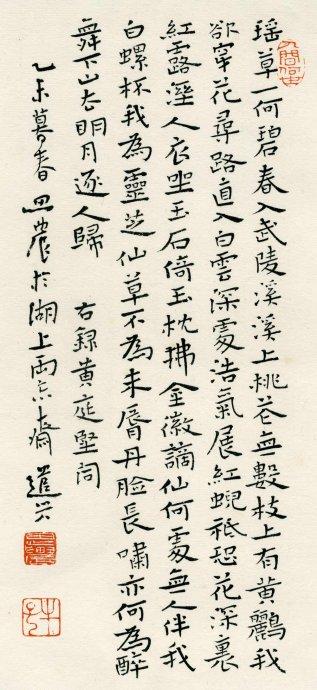 瑶草一何碧春入武陵溪溪上桃花無數枝上有黄鸝我
欲穿花尋路直入白雲深處浩氣展紅蜺祗恐花深裏
紅露溼人衣坐玉石倚玉枕拂金徽謫仙何處無人伴我
白螺杯我為靈芝仙草不為朱脣丹臉長嘯亦何為醉
舞下山去明月逐人歸 右録黄庭堅詞
乙未暮春 農於湖上兩忘齋